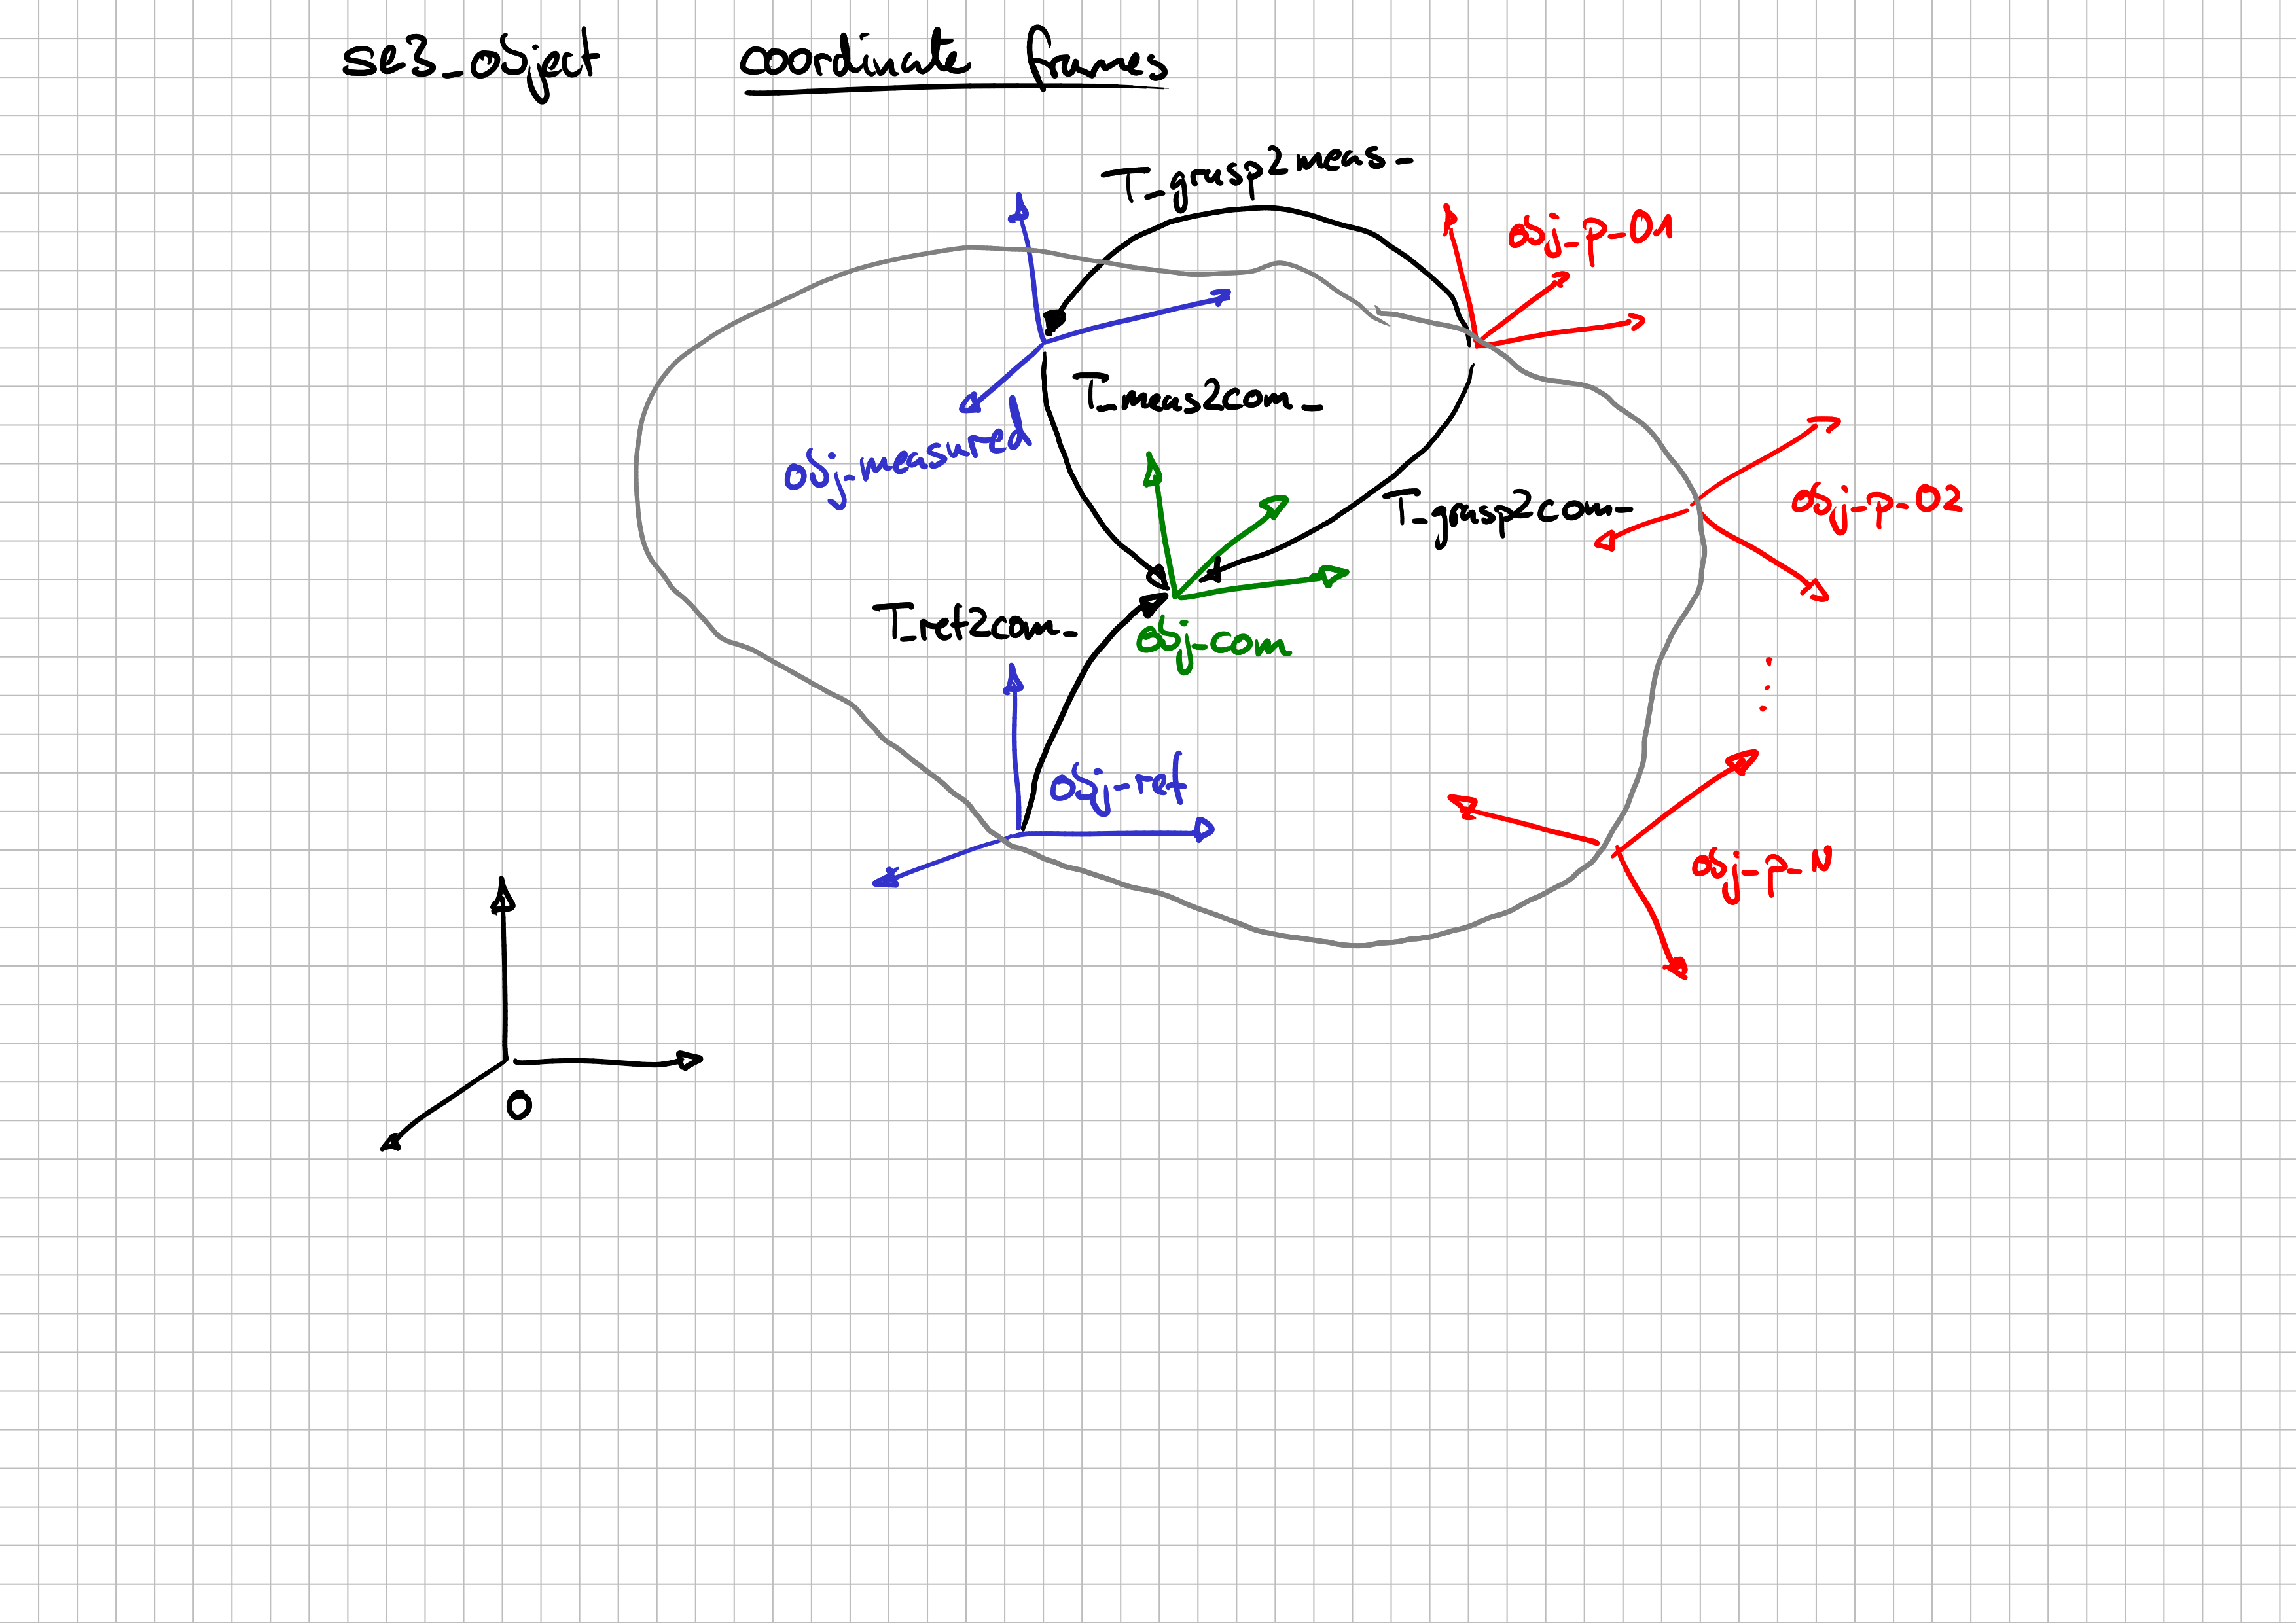 se3_object coordinate frames
T_grasp2meas_
obj_p_01
T_meas2com_
obj_measured
T_grasp2com_
obj_p_02
T_ref2com_
obj_com
obj_ref
obj_p_N
O